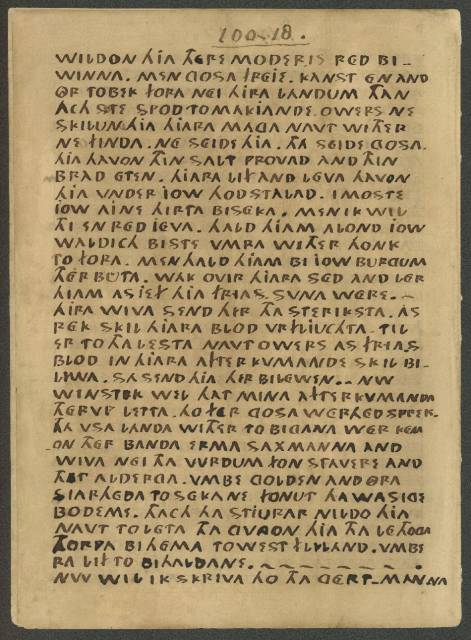 100-18.
WILDON HIA THERE MODERIS RED BI-
WINNA. MEN GOSA FREIE. KANST EN AND
OR TOBEK FORA NEI HIRA LANDUM THAN
ACH STE SPOD TO MAKIANDE. OWERS NE
SKILUN HIA HIARA MAGA NAVT WITHER
NE FINDA. NE SEIDE HIA. THA SEIDE GOSA.
HIA HAVON THIN SALT PROVAD AND THIN
BRAD ETEN. HIARA LIF AND LEVA HAVON
HIA VNDER IOW HOD STALAD. I MOSTE
IOW AINE HIRTA BISEKA. MEN IK WIL
THI EN RED IEVA. HALD HIAM ALOND IOW
WALDICH BISTE VMRA WITHER HONK
TO FORA. MEN HALD HIAM BI IOW BURGUM
THER BUTA. WAK OVIR HIARA SED AND LER
HIAM AS IEF HIA FRIAS SVNA WERE.-
HIRA WIVA SEND HIR THA STERIKSTA. AS
REK SKIL HIARA BLOD VRFLIUCHTA. TIL
ER TO THA LESTA NAVT OWERS AS FRIAS
BLOD IN HIARA AFTERKVMANDE SKIL BI-
LIWA. SA SEND HIA HIR BILEWEN.. NW
WINSTEK WEL HAT MINA AFTERKVMANDA
THER VP LETTA. HO FER GOSA WERHED SPREK.
THA VSA LANDA WITHER TO BIGANA WER KEM
-ON THER BANDA ERMA SAXMANNA AND
WIVA NEI THA VVRDUM FON STAVERE AND
THAT ALDERGA. VMBE GOLDEN AND ORA
SIARHEDA TO SEKANE FONUT THA WASIGE
BODEME. THACH THA STIURAR NILDO HIA
NAVT TO LETA. THA GVNGON HIA THA LETHOGA
THORPA BIHEMA TO WEST FLILAND. VMBE
RA LIF TO BIHALDANE.
NW WIL IK SKRIVA HO THA GERT-MANNA